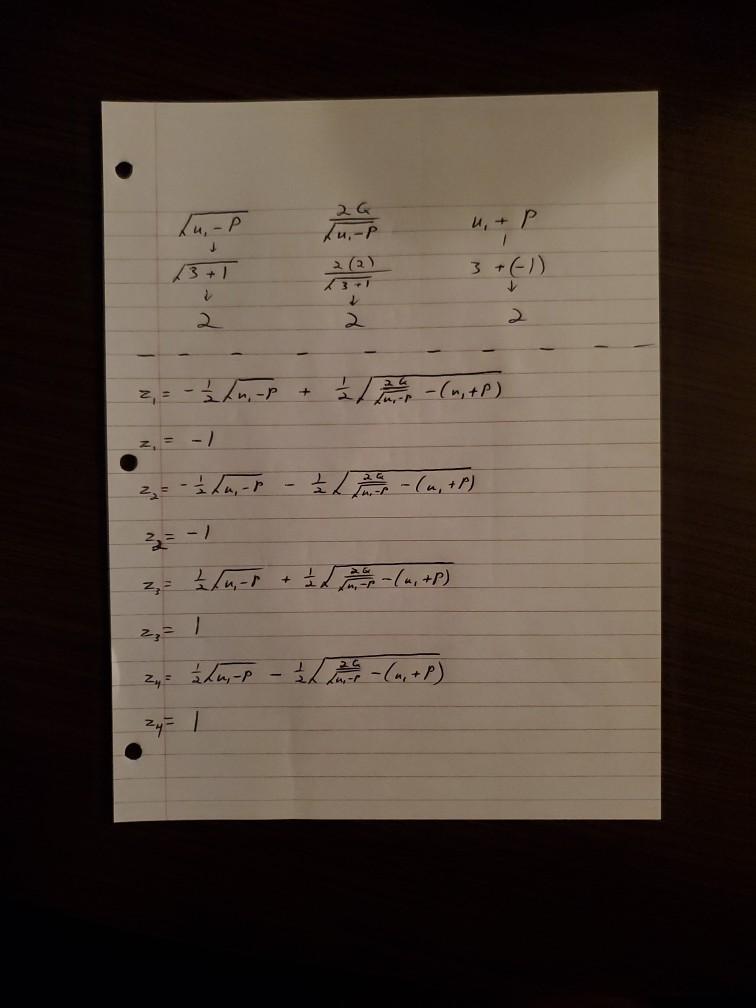 √u₁-P 2G/√u₁-P u₁ + P
↓ |
√3+1 2(2)/√3+1 3 + (-1)
↓ ↓ ↓
2 2 2
— — — — — — — — — —
z₁ = -½√u₁-P + ½√2G/√u₁-P - (u₁+P)
z₁ = -1
z₂ = -½√u₁-P - ½√2G/√u₁-P - (u₁+P)
z₂ = -1
z₃ = ½√u₁-P + ½√2G/√u₁-P - (u₁+P)
z₃ = 1
z₄ = ½√u₁-P - ½√2G/√u₁-P - (u₁+P)
z₄ = 1